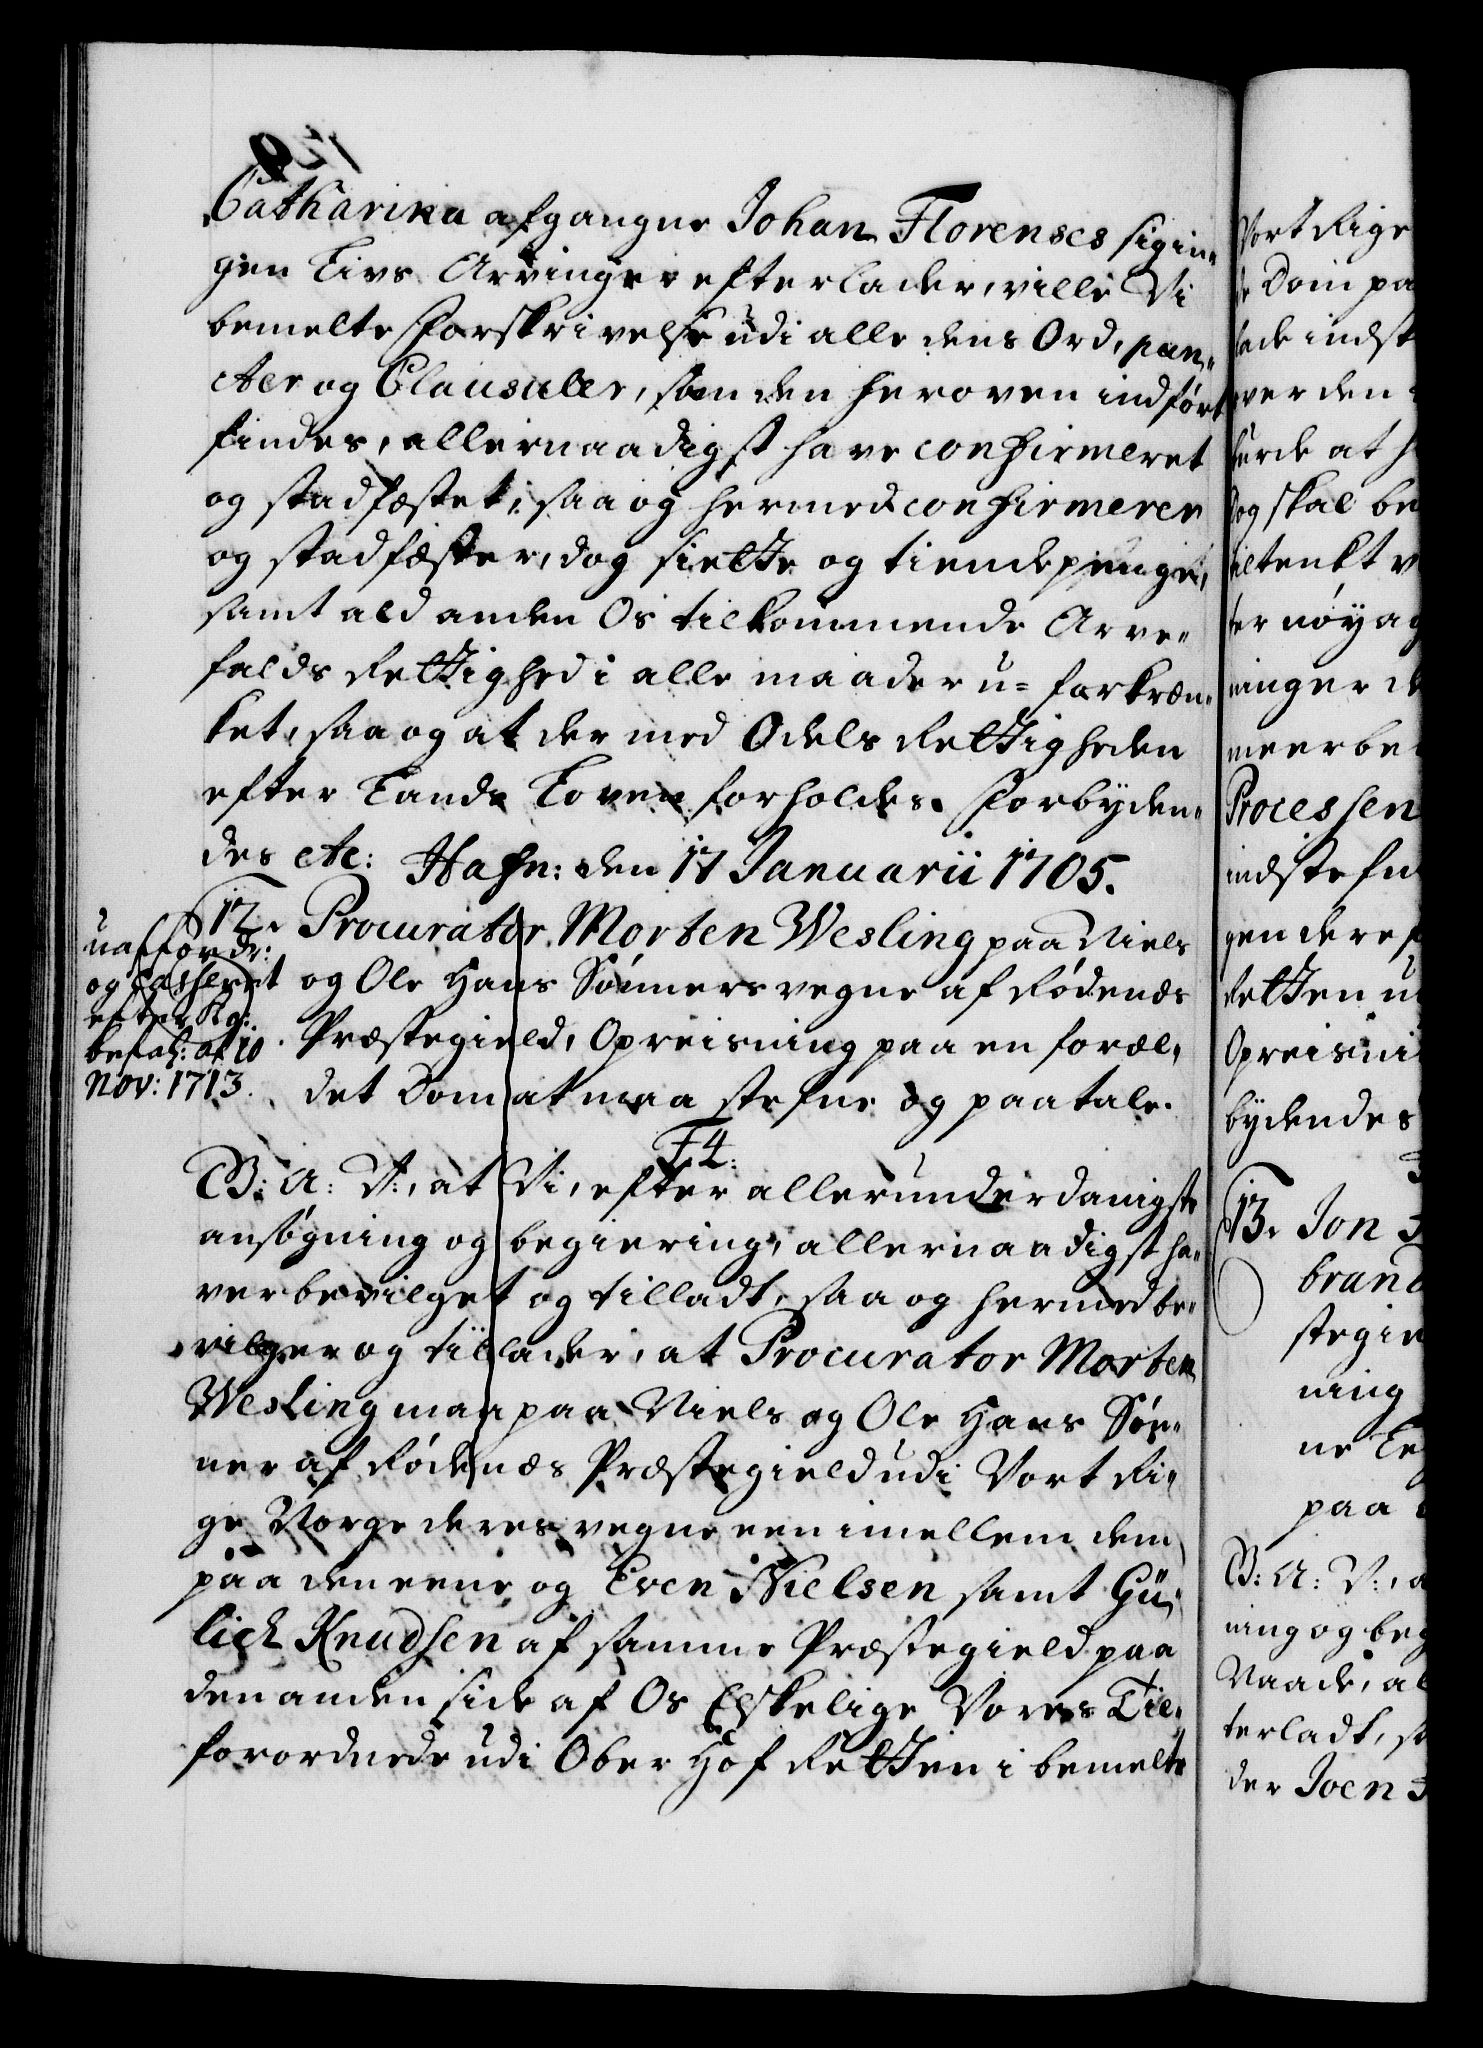 Catharina afgangne Johan Florenses sigin-
gen Livs Arvinger efterlader, ville Vi
bemelte Forskrivelse udi alle dens Ord, pun-
cter og Clausuler, som den heroven indført
findes, allernaadigst have confirmeret
og stadfæstet, saa og hermed confirmerer
og stadfæster, dog siette og tiende penge,
samt ald anden Os tilkommende Arve-
falds Rettighed i alle maader u-forkræn-
ket, saa og at der med Odels Rettigheden
efter Lands Loven forholdes. Forbyden-
des etc: Hafn: den 17 Januarii 1705.
12. Procurator Morten Wesling paa Niels
og Ole Hans Sønners vegne af Rødenæs
Præstegield, Opreisning paa en foræl-
det Dom at maa stefne og paatale.
uaffordr:
og Casseret
efter Kg:
befal: af 10
Nov: 1713.
F4:
G: A: V:, at Vi, efter allerunderdanigste
ansøgning og begiering, allernaadigst ha-
ver bevilget og tilladt, saa og hermed be-
vilger og tillader, at Procurator Morten
Wesling maa paa Niels og Ole Hans Søn-
ner af Rødenæs Præstegield udi Vort Ri-
ge Norge deres vegne een imellem dem
paa den eene og Even Nielsen samt Gu-
lich Knudsen af samme Præstegield paa
den anden side af Os Elskelige Vores Til-
forordnede udi Ober Hof Retten i bemelte
Vort Rige
Dom paa
lade indst
ver den
burde at h
Dog skal be
tiltenkt v
ter nøyag
ninger de
meerbe
Processen
indstefn
gen der ef
Retten u
Opreisni
bydendes
13. Jon
brand
stegie
ning
ne Le
paa
G: A: V:, a
ning og beg
Naade, al
terladt, s
der Joen